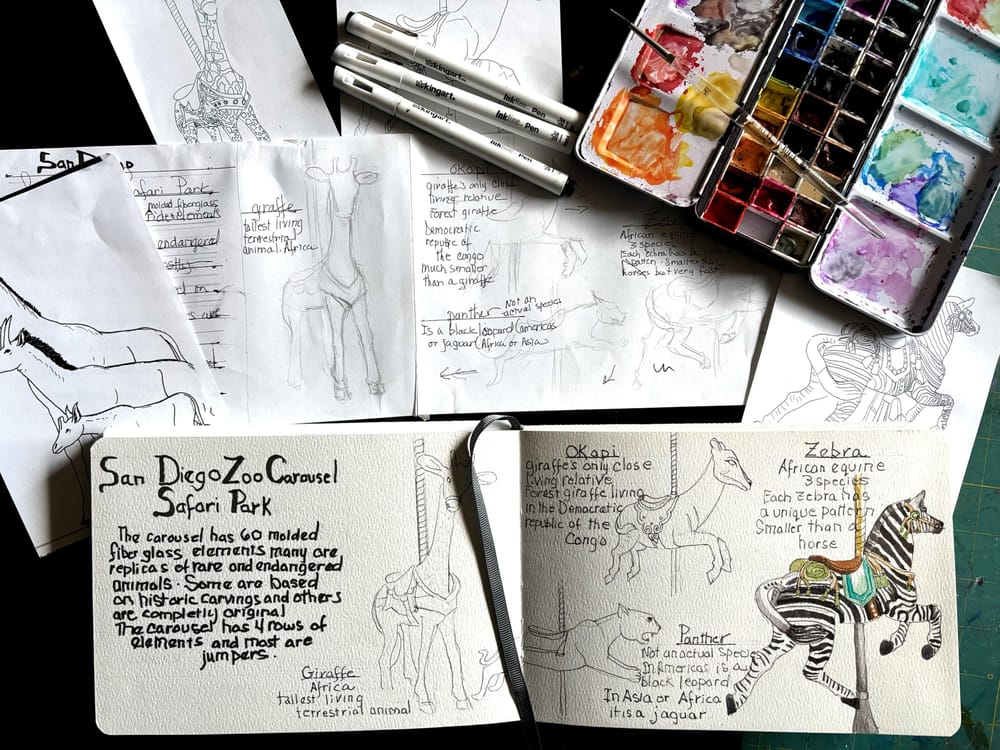 ekingart.
Inkline Pen
ekingart.
Inkline Pen
ekingart.
Inkline Pen
San
Safari Park
molded fiberglass
elements
endangered
giraffe
tallest living
terrestrial
animal. Africa
OKapi
giraffe's only close
living relative
Forest giraffe
Democratic
republic of
the congo
much smaller
than a giraffe
panther Not an
actual species
Is a black leopard (americas
or jaguar (Africa or Asia)
African equine
3 species
Each Zebra has a
pattern. Smaller than
horses but very fast
San Diego Zoo Carousel
Safari Park
The carousel has 60 molded
fiber glass elements many are
replicas of rare and endangered
animals. Some are based
on historic carvings and others
are completly original
The carousel has 4 rows of
elements and most are
jumpers.
Giraffe
Africa
tallest living
terrestrial animal
OKapi
giraffe's only close
living relative
Forest giraffe living
in the Democratic
republic of the
Congo
Zebra
African equine
3 species
Each Zebra has
a unique pattern
Smaller than a
horse
Panther
Not an actual species
In Americas is a
black leopard
In Asia or Africa
it is a jaguar